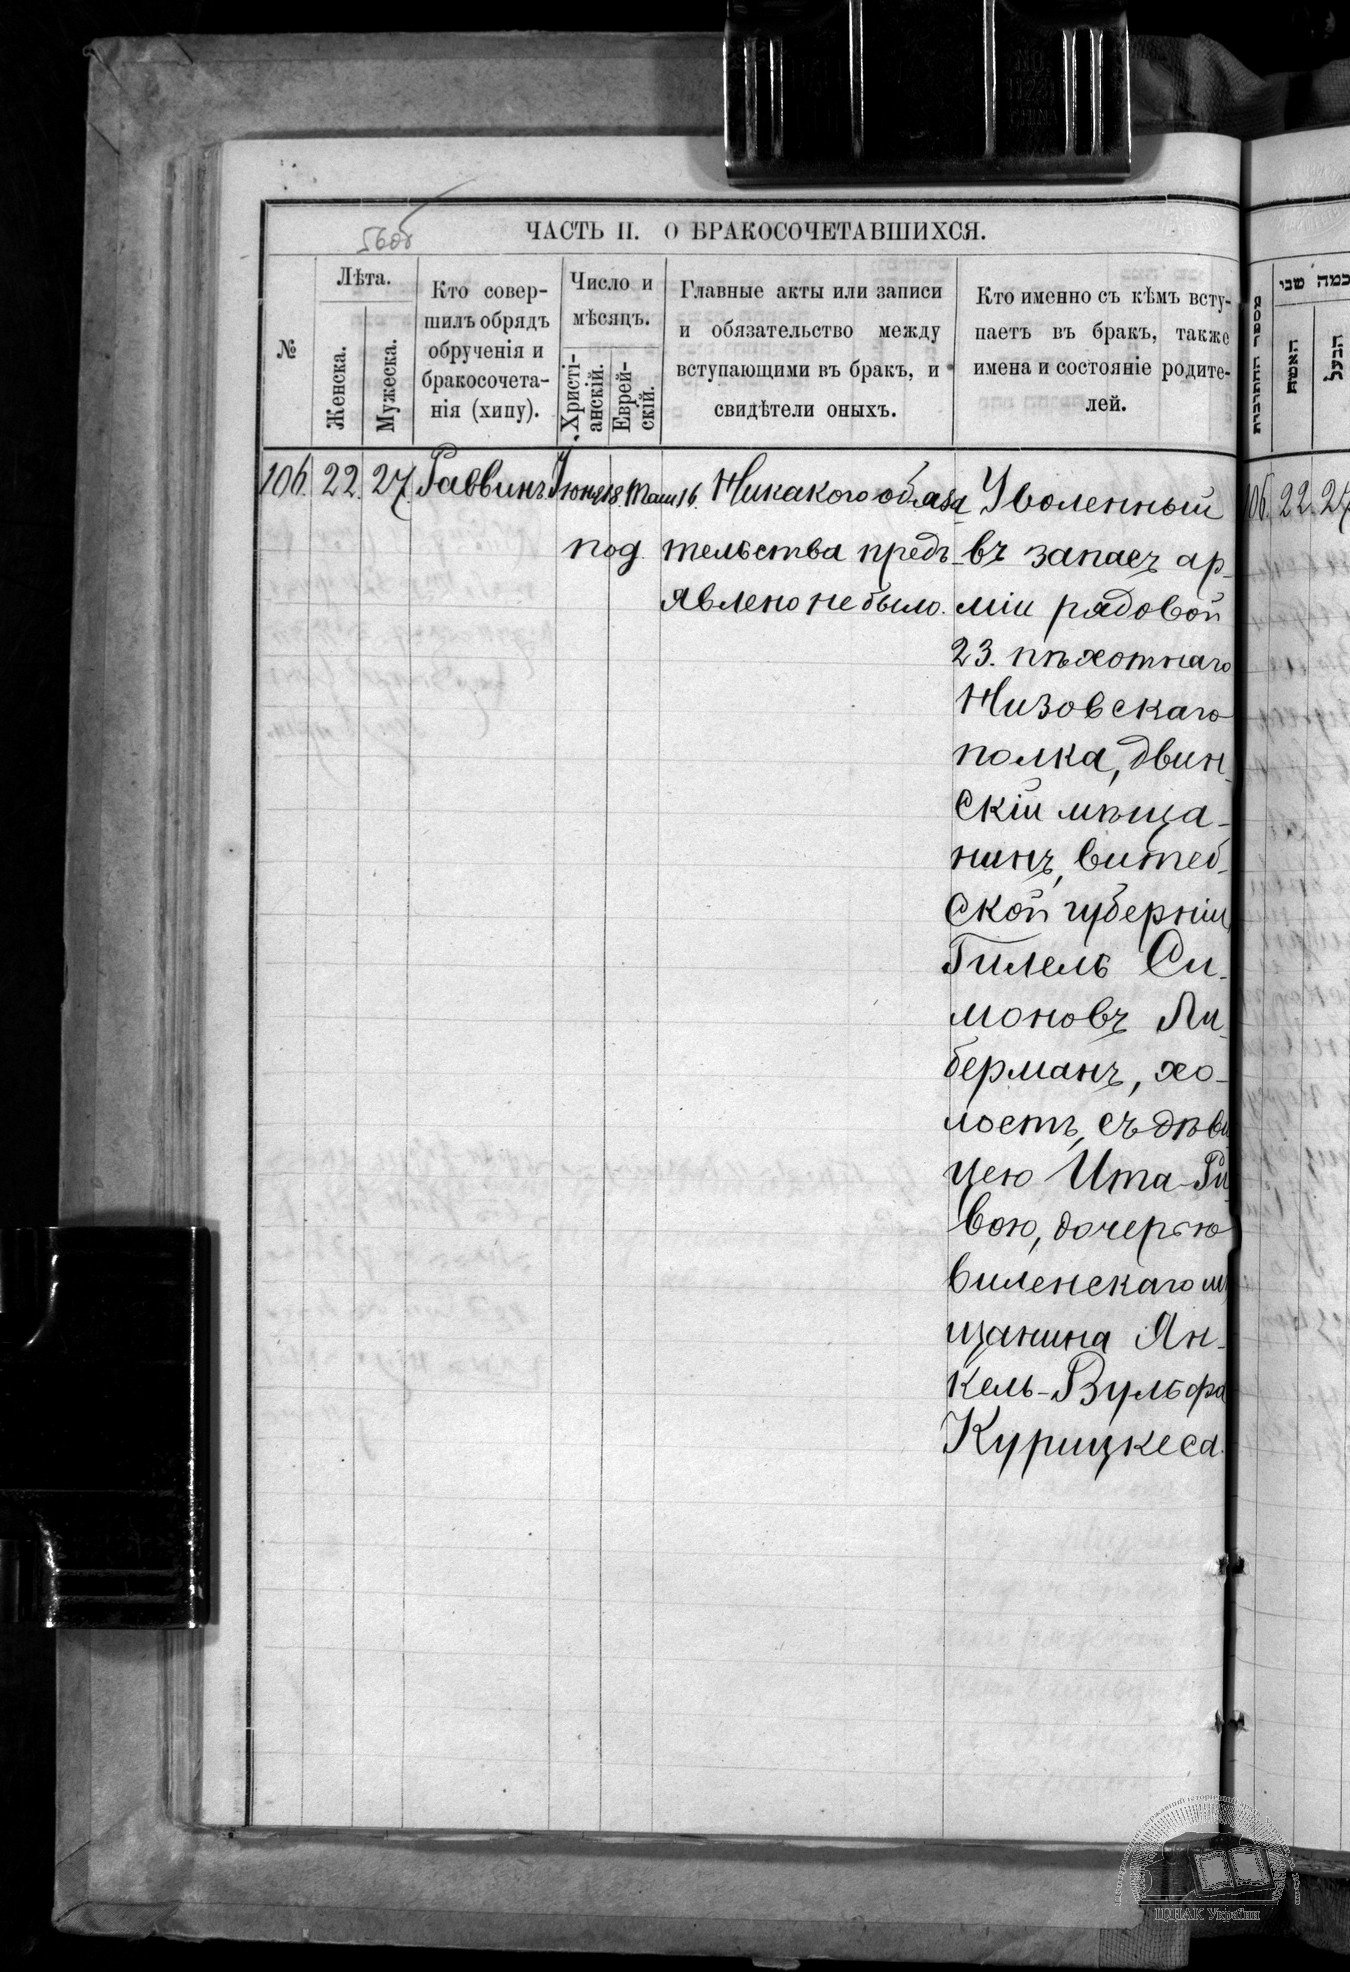 56об
ЧАСТЬ II. О БРАКОСОЧЕТАВШИХСЯ.
№
Лѣта.
Женска.
Мужеска.
Кто совер-
шилъ обрядъ
обрученія и
бракосочета-
нія (хипу).
Число и
мѣсяцъ.
Христі-
анскій.
Еврей-
скій.
Главные акты или записи
и обязательство между
вступающими въ бракъ, и
свидѣтели оныхъ.
Кто именно съ кѣмъ всту-
паетъ въ бракъ, также
имена и состояніе родите-
лей.
106. 22. 27. Раввинъ Іюня 18. Таш 16. Никакого обяза
под тельства предъ-
явлено не было.
Уволенный
въ запасъ ар-
міи рядовой
23. пѣхотнаго
Низовскаго
полка, двин-
скій мѣща-
нинъ, витеб-
ской губерніи,
Гилель Си-
моновъ Ли-
берманъ, хо-
лостъ, съ дѣви
цею Ита-Ри
вою, дочерью
виленскаго м
щанина Ян-
кель-Вульфа
Курицкеса.
מספר החתונות
כמה שני
האשה
הבעל
106. 22. 27
ЦДІАК України